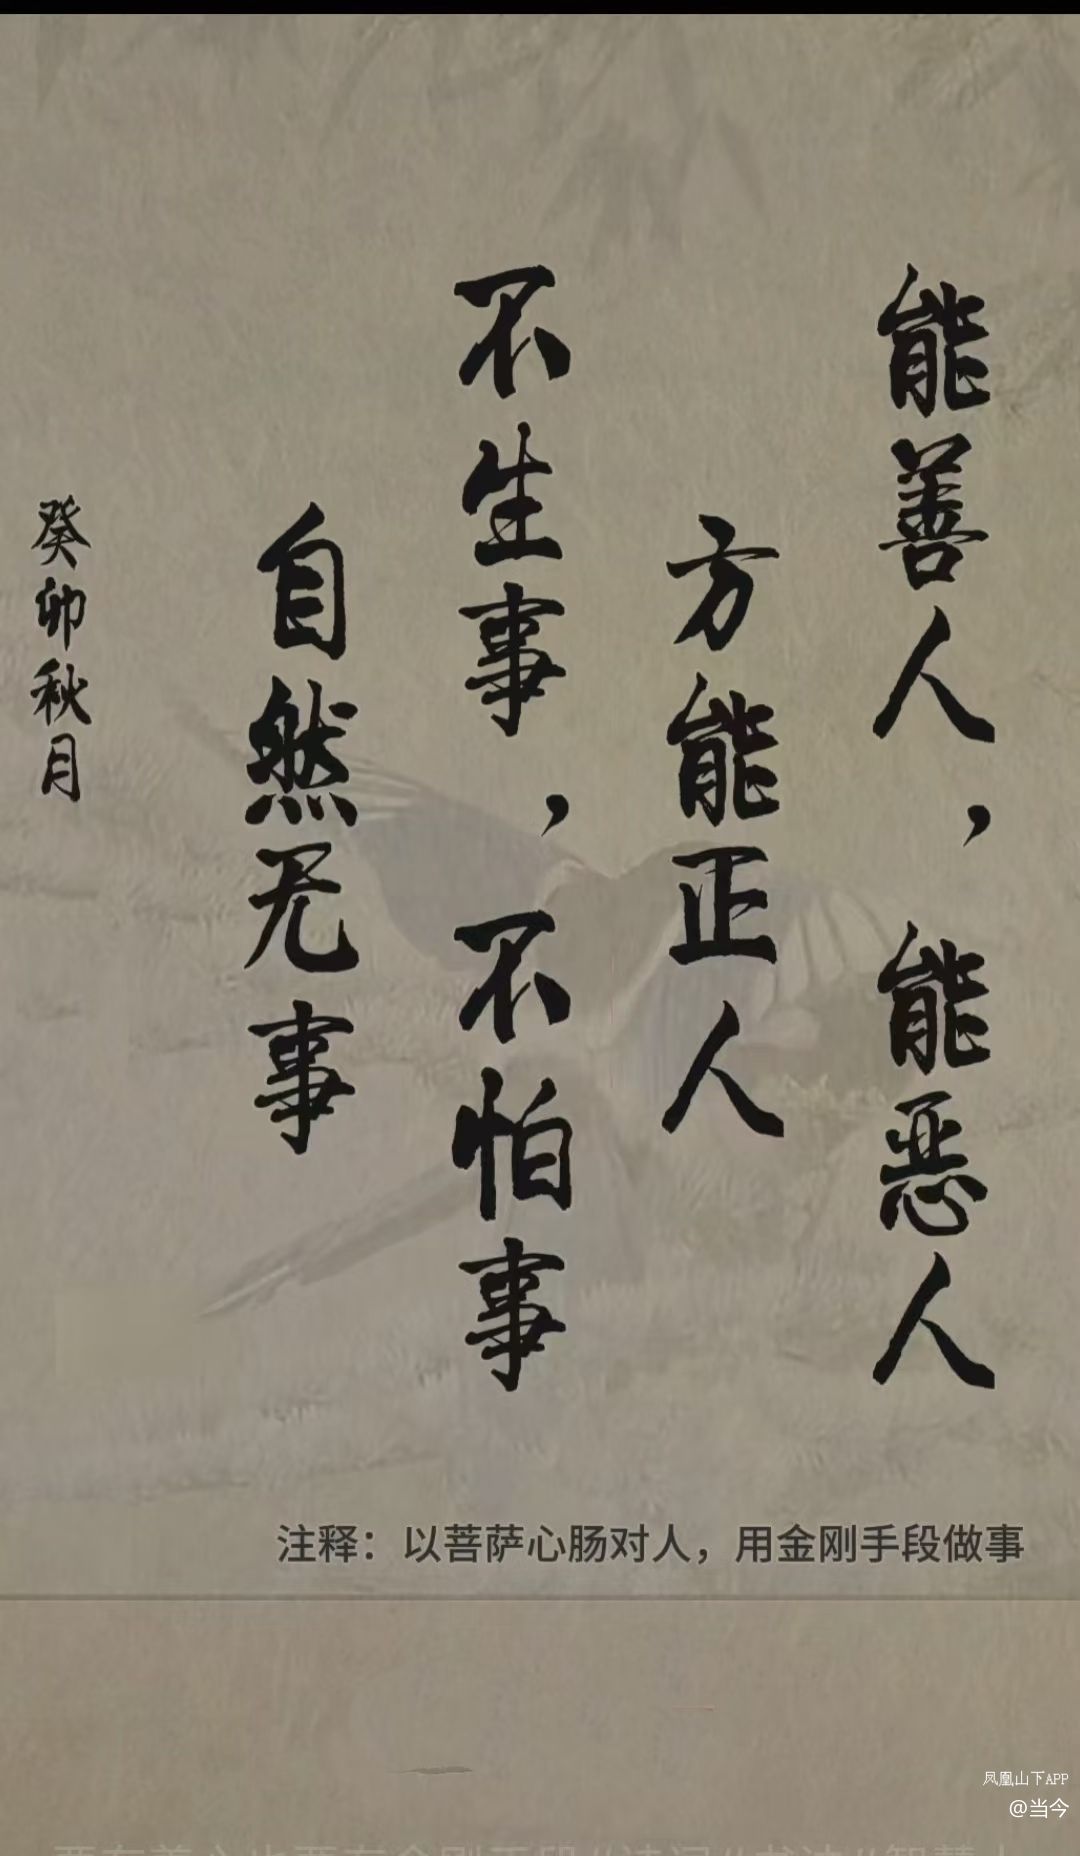 能善人，能恶人
方能正人
不生事，不怕事
自然无事
癸卯秋月
注释：以菩萨心肠对人，用金刚手段做事
凤凰山下APP
@当今